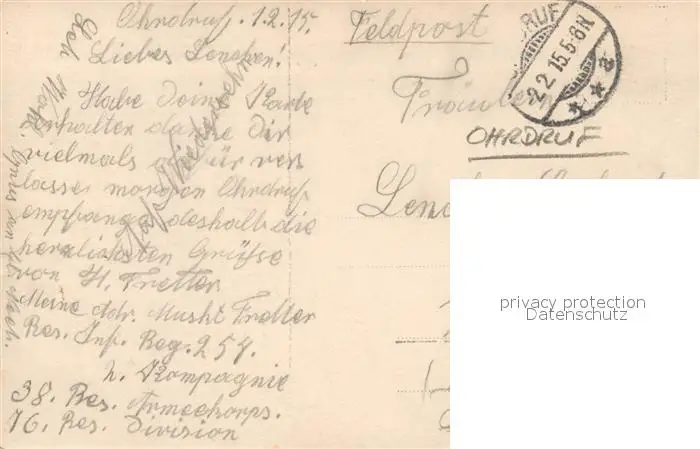 Ohrdruf. 1.2.15.
Liebes Lenchen!
Habe Deine Karte
erhalten danke Dir
vielmals dafür ver
lasse morgen Ohrdruf
empfange deshalb die
herzlichsten Grüße
von H. Fretter
Meine Adr. Muskt Fretter
Res. Inf. Reg. 254.
Kompagnie
38. Res. Armeekorps.
76. Res. Division
Auf Wiedersehn
Feldpost
Fräulein
OHRDRUF
2.2.15.5-6N
a
OHRDRUF
privacy protection
Datenschutz